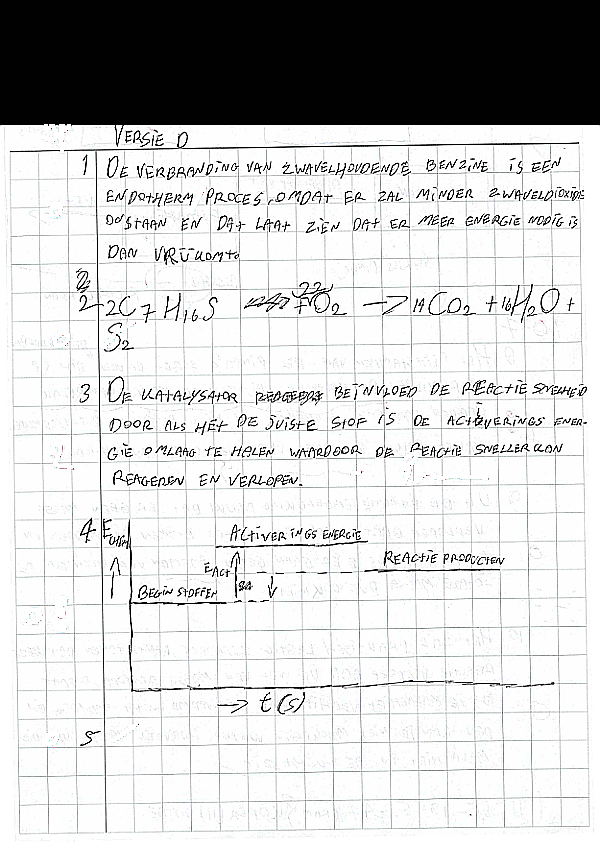 VERSIE D
1 DE VERBRANDING VAN ZWAVELHOUDENDE BENZINE IS EEN
ENDOTHERM PROCES, OMDAT ER ZAL MINDER ZWAVELDIOXIDE
ONSTAAN EN DAT LAAT ZIEN DAT ER MEER ENERGIE NODIG IS
DAN VRIJKOMT.
2
2 2C7H16S 22O2 → 14CO2 + 16H2O +
S2
3 DE KATALYSATOR BEÏNVLOED DE REACTIE SNELHEID
DOOR ALS HET DE JUISTE STOF IS DE ACTIVERINGS ENER-
GIE OMLAAG TE HALEN WAARDOOR DE REACTIE SNELLER KAN
REAGEREN EN VERLOPEN.
4 ↑ ACTIVERINGS ENERGIE
EACT ↑ ↓ REACTIE PRODUCTEN
BEGIN STOFFEN
→ t(s)
5